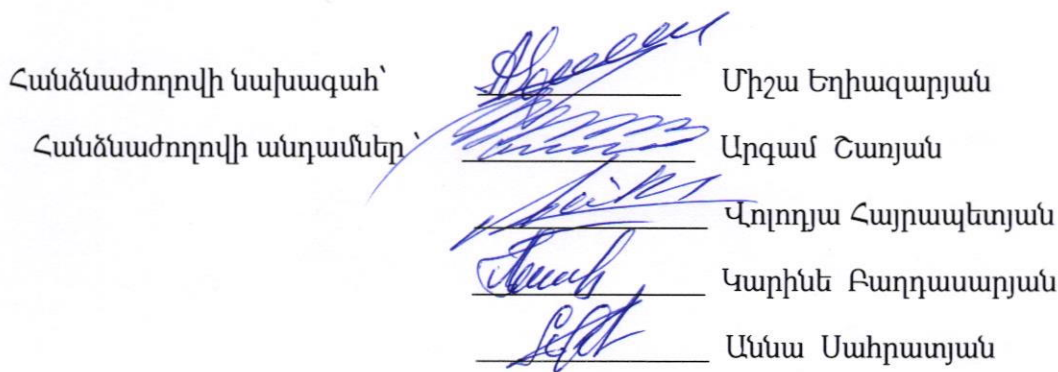 Հանձնաժողովի նախագահ՝ Միշա Եղիազարյան
Հանձնաժողովի անդամներ՝ Արգամ Շառյան
Վոլոդյա Հայրապետյան
Կարինե Բաղդասարյան
Աննա Սահրատյան